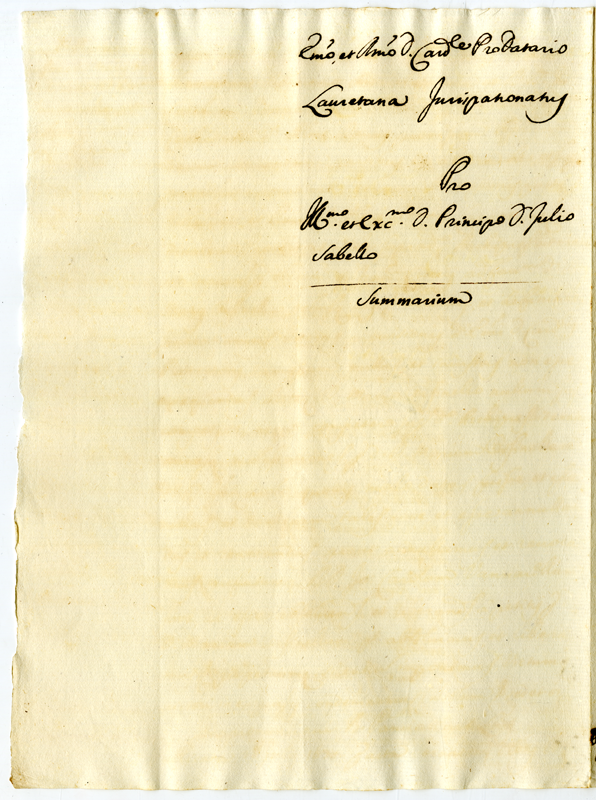 Emo, et Rmo D. Cardle ProDatario
Lauretana Jurispatronatus
Pro
Illmo. et Excmo. D. Principe D. Julio
Sabello
Summarium